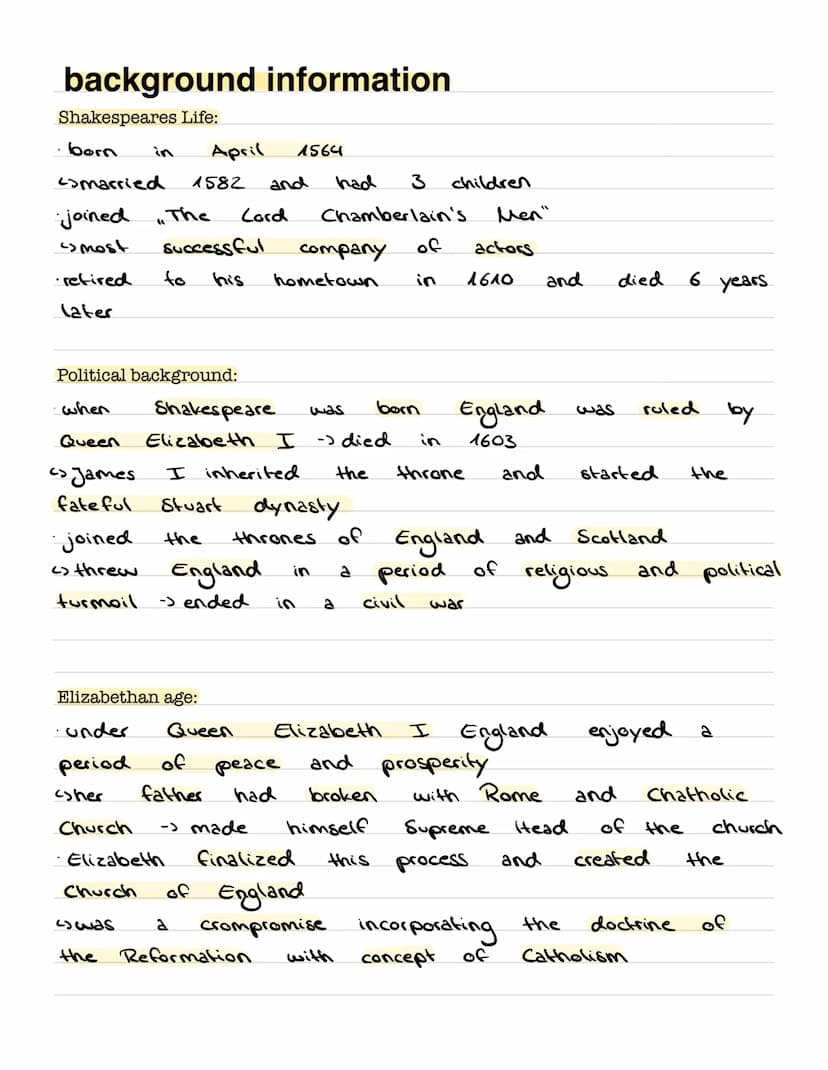 background information
Shakespeares Life:
· born in April 1564
↳married 1582 and had 3 children
·joined „The Lord Chamberlain's Men"
↳most successful company of actors
·retired to his hometown in 1610 and died 6 years
later
Political background:
·when Shakespeare was born England was ruled by
Queen Elizabeth I -> died in 1603
↳James I inherited the throne and started the
fateful Stuart dynasty
·joined the thrones of England and Scotland
↳threw England in a period of religious and political
turmoil -> ended in a civil war
Elizabethan age:
·under Queen Elizabeth I England enjoyed a
period of peace and prosperity
↳her father had broken with Rome and Chatholic
Church -> made himself Supreme Head of the church
·Elizabeth finalized this process and created the
Church of England
↳was a crompromise incorporating the doctrine of
the Reformation with concept of Catholism